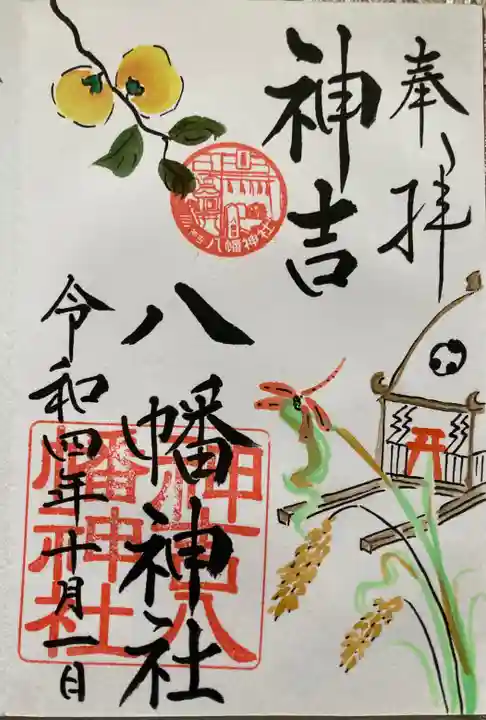 奉拝
神吉
八幡神社
令和四年十月一日
八幡神社
神吉八幡神社